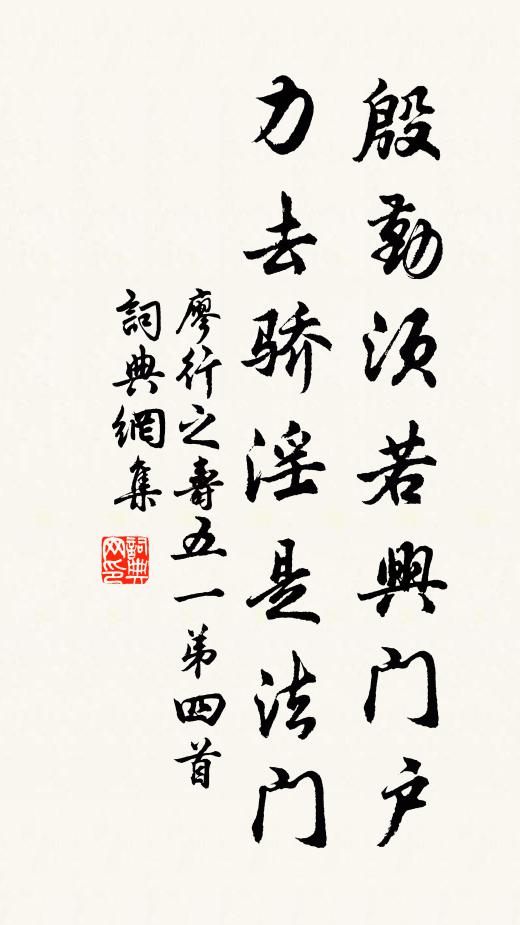 殷勤须若興门户
力去骄淫是法门
廖行之壽五一第四首
詞典網集
詞典网印